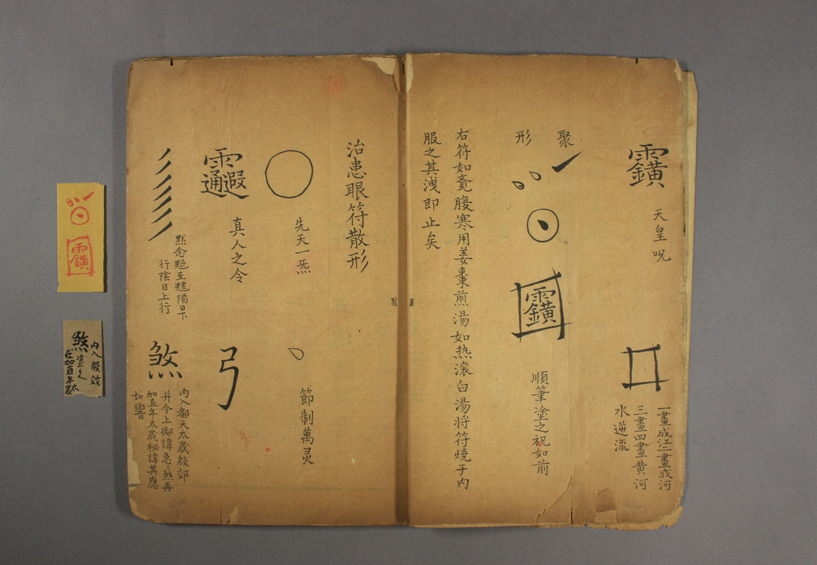 天皇呪
一畫成江二畫成河
三畫四畫黄河
水逆流
聚
形
順筆塗之祝如前
右符如瀉腹寒用姜棗煎湯如热滚白湯將符燒于内
服之其洩即止矣
治患眼符散形
先天一炁
節制萬灵
真人之令
弓
行陰日上行
煞
内入都天太歲殺郊
并令上御諱急煞再
加五年太歲秘諱其應
如響
煞